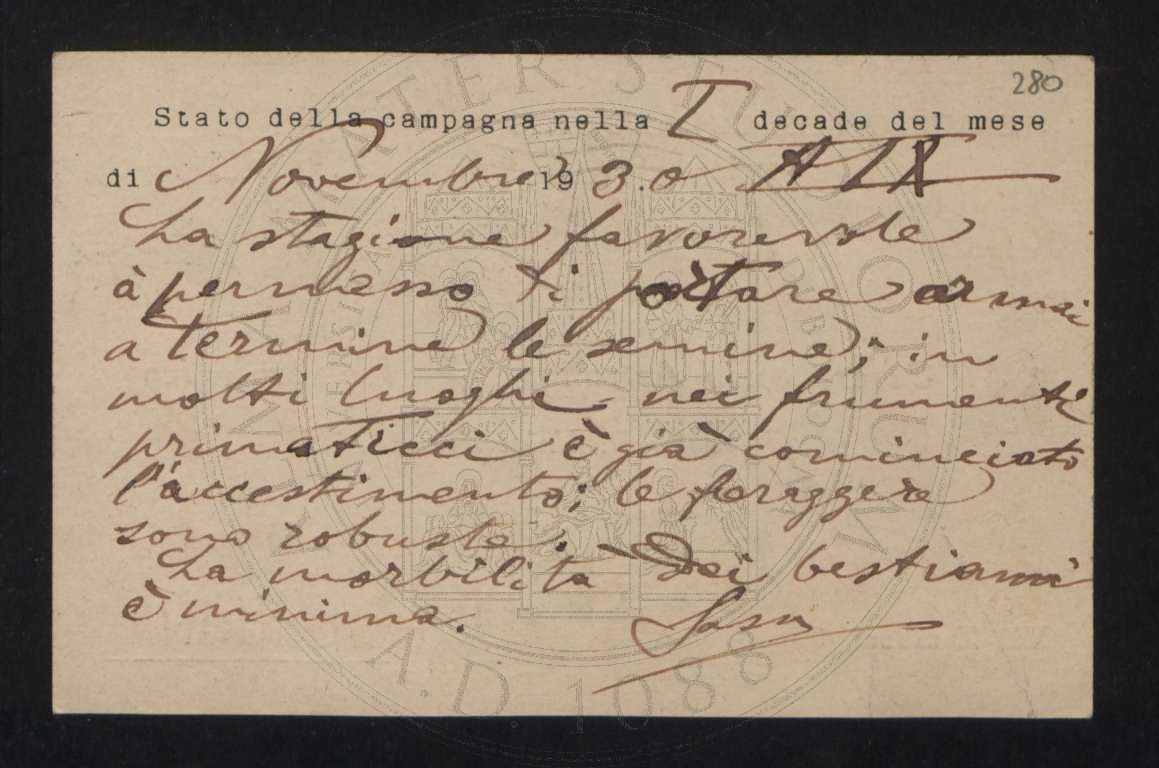 280
Stato della campagna nella I decade del mese
di Novembre 1930 A IX
La stagione favorevole
à permesso di portare ormai
a termine le semine; in
molti luoghi, nei frumenti
primaticci è già cominciato
l'accestimento; le foraggere
sono robuste.
La morbilità dei bestiami
è minima.
ALMA MATER STUDIORUM
A.D. 1088